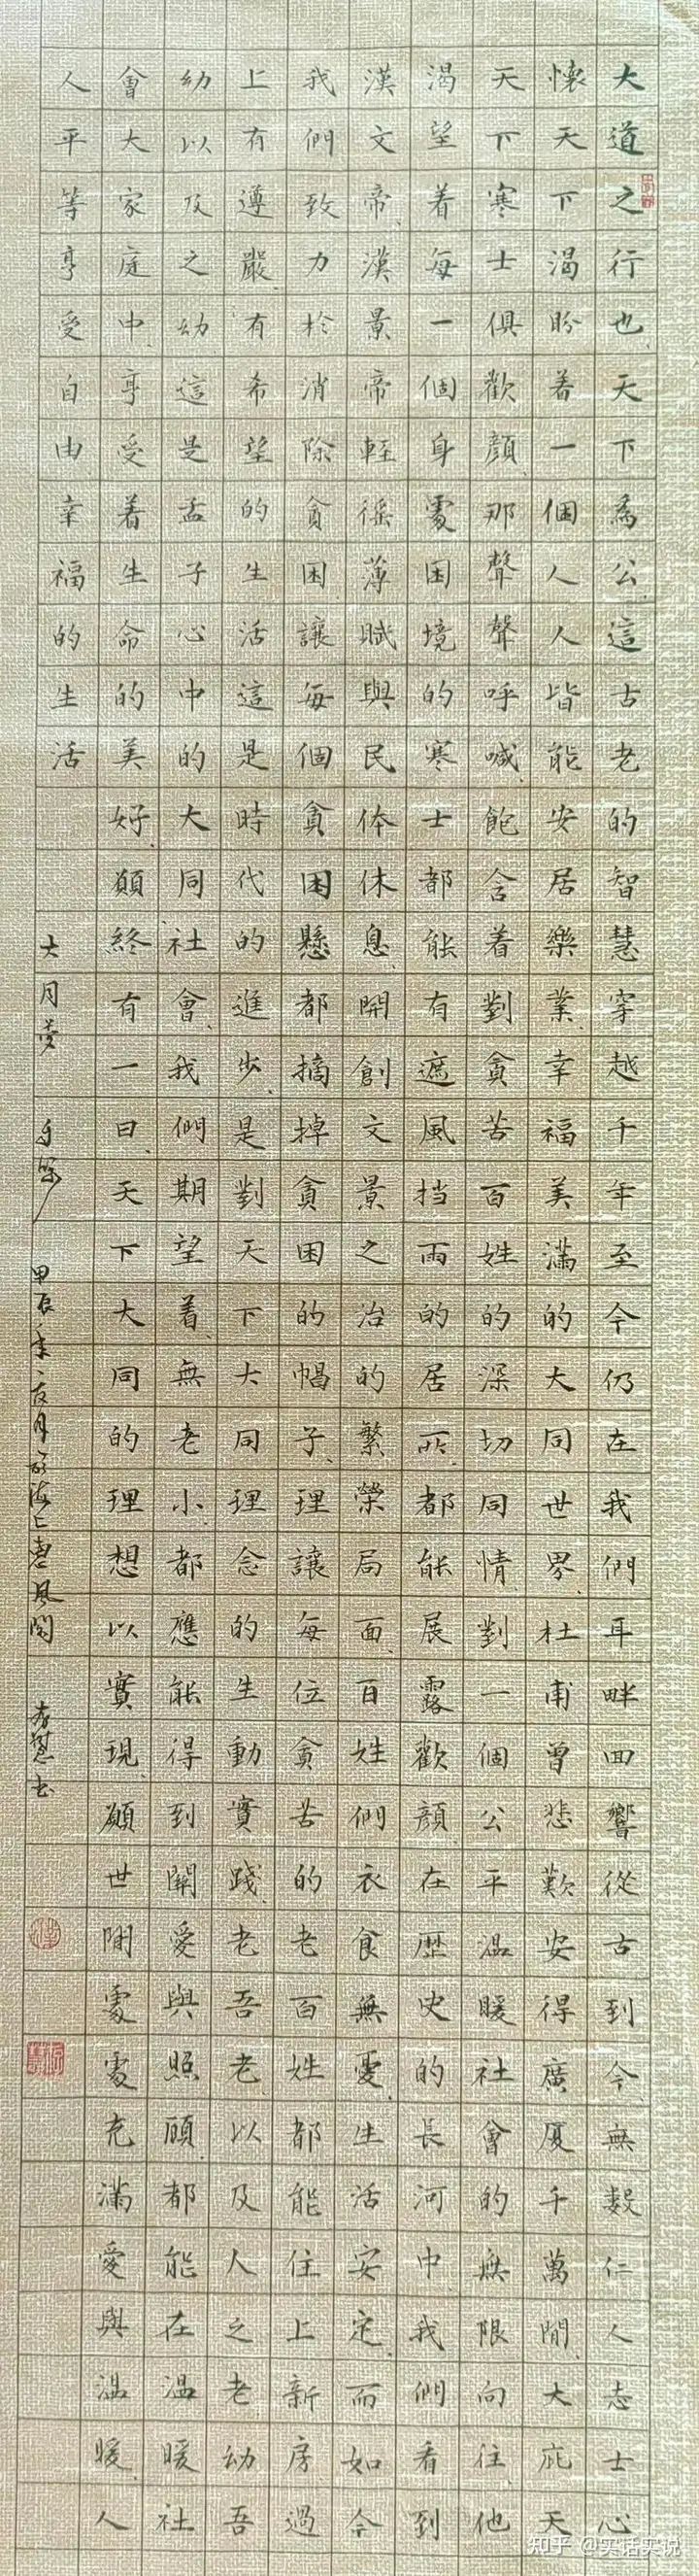 大道之行也天下為公這古老的智慧穿越千年至今仍在我們耳畔回響從古到今無數仁人志士心
懷天下渴盼着一個人人皆能安居樂業幸福美滿的大同世界杜甫曾悲歎安得廣厦千萬間大庇天
天下寒士俱歡顏那聲聲呼喊飽含着對貧苦百姓的深切同情對一個公平溫暖社會的無限向往他
渴望着每一個身處困境的寒士都能有遮風挡雨的居所都能展露歡顏在歷史的長河中我們看到
漢文帝漢景帝輕徭薄賦與民休休息開創文景之治的繁榮局面百姓們衣食無憂生活安定而如今
我們致力於消除貧困讓每個貧困懸都摘掉貧困的帽子理讓每位貧苦的老百姓都能住上新房過
上有遵嚴有希望的生活這是時代的進步是對天下大同理念的生動實踐老吾老以及人之老幼吾
幼以及之幼這是孟子心中的大同社會我們期望着無老小都應能得到關愛與照顧都能在溫暖社
會大家庭中享受着生命的美好願終有一日天下大同的理想以實現願世間處處充滿愛與溫暖人
人平等享受自由幸福的生活
甲辰年
知乎 @实话实说